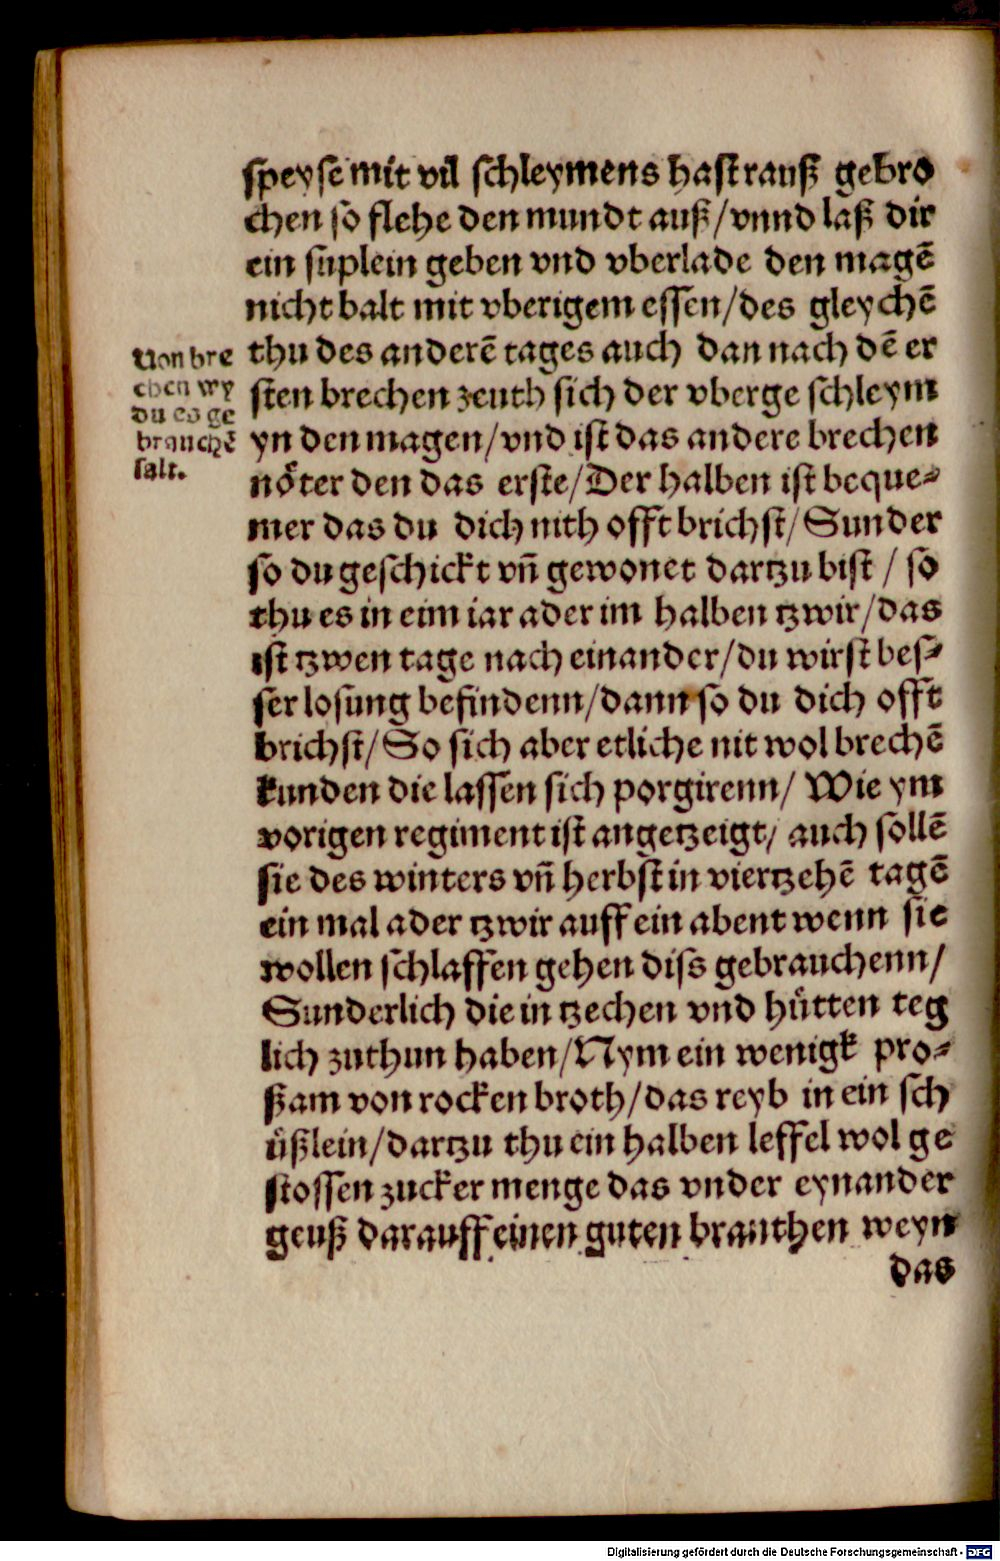 speyse mit vil schleymens hast rauß gebro
chen so flehe den mundt auß/vnnd laß dir
ein suplein geben vnd vberlade den magē
nicht balt mit vberigem essen/des gleychē
thu des anderē tages auch dan nach dē er
sten brechen zeuth sich der vberge schleym
yn den magen/vnd ist das andere brechen
nöter den das erste/Der halben ist beque-
mer das du dich nith offt brichst/Sunder
so du geschickt vn̄ gewonet dartzu bist / so
thu es in eim iar ader im halben tzwir/das
ist tzwen tage nach einander/du wirst bes-
ser losung befindenn/dann so du dich offt
brichst/So sich aber etliche nit wol brechē
kunden die lassen sich porgirenn/ Wie ym
vorigen regiment ist angetzeigt/ auch sollē
sie des winters vn̄ herbst in viertzehē tagē
ein mal ader tzwir auff ein abent wenn sie
wollen schlaffen gehen diss gebrauchenn/
Sunderlich die in tzechen vnd hütten teg
lich zuthun haben/Nym ein wenigk pro-
ßam von rocken broth/das reyb in ein sch
üßlein/dartzu thu ein halben leffel wol ge
stossen zucker menge das vnder eynander
geuß darauff einen guten branthen weyn
das
Von bre
chen wy
du es ge
brauchē
salt.
Digitalisierung gefördert durch die Deutsche Forschungsgemeinschaft - DFG